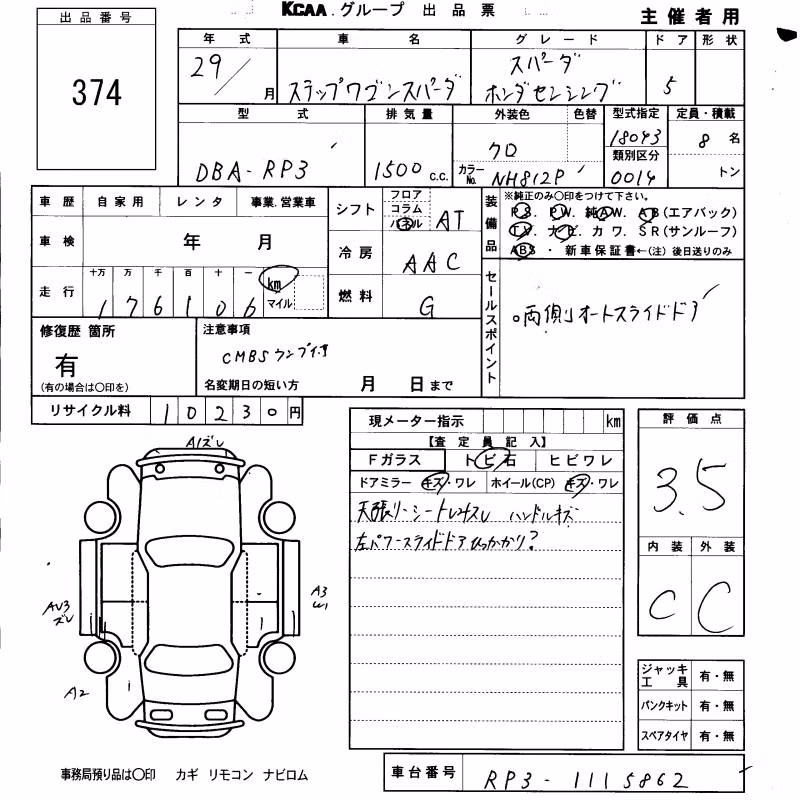 KCAA.グループ 出品票
主催者用
出品番号
374
年式 車名 グレード ドア 形状
29/月 ステップワゴンスパーダ スパーダ ホンダセンシング 5
型式 排気量 外装色 色替 型式指定 定員・積載
DBA-RP3 1500 c.c. クロ カラーNo. NH812P 18043 8名
類別区分 0014 トン
車歴 自家用 レンタ 事業.営業車
車検 年 月
走行 十万 万 千 百 十 一 km マイル
176106
シフト フロア コラム パネル AT
冷房 AAC
燃料 G
装備品 ※純正のみ〇印をつけて下さい。
P.S. P.W. 純A.W. A.B(エアバック)
T.V. ナビ. カワ. S.R(サンルーフ)
ABS ・ 新車保証書←(注) 後日送りのみ
セールスポイント
。両側オートスライドドア
修復歴 箇所
有
(有の場合は〇印を)
注意事項
CMBS
名変期日の短い方 月 日まで
リサイクル料 10230円
現メーター指示 km
【査定員記入】
Fガラス トビ石 ヒビワレ
ドアミラー キズ・ワレ ホイール(CP) キズ・ワレ
天張リーシートヨゴレスレ ハンドルキズ
左パワースライドドアひっかかり?
評価点
3.5
内装 外装
C C
A1ズレ
A3
W1
AU3
ズレ
A2
ジャッキ工具 有・無
パンクキット 有・無
スペアタイヤ 有・無
事務局預り品は〇印 カギ リモコン ナビロム
車台番号 RP3-1115862